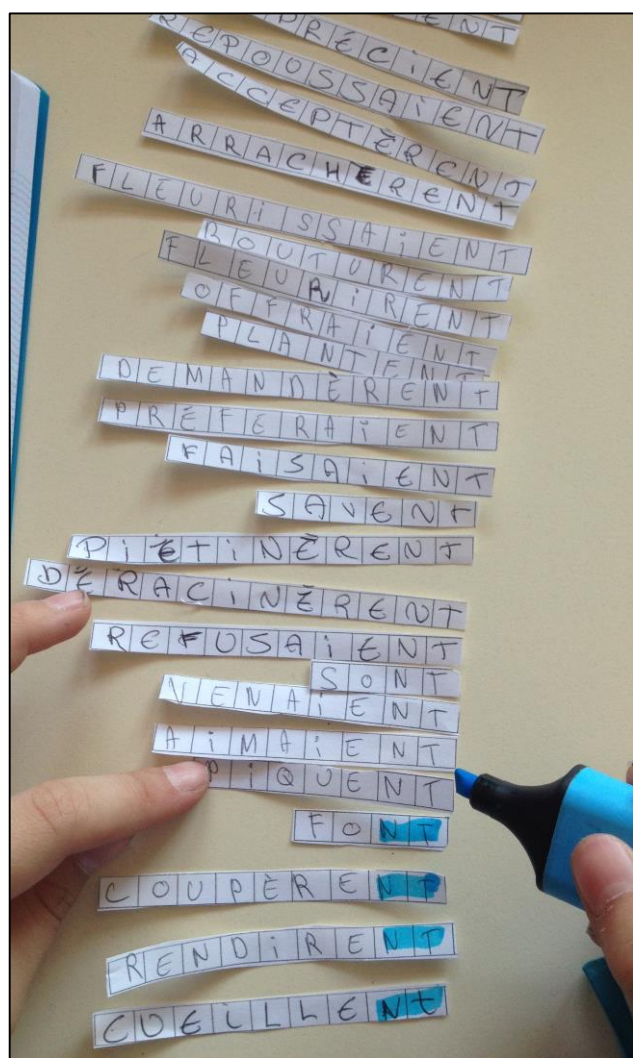 ENT
PRÉCIENT
REPOUSSAiENT
ACCEPTÈRENT
ARRACHERENT
FLEURiSSAiENT
BOUTURENT
FLEURiRENT
OFFRAiENT
PLANTENT
DEMANDÈRENT
PRÉFERAiENT
FAiSAiENT
SAVENT
PiETiNÈRENT
DÉRACiNÈRENT
REFUSAiENT
SONT
VENAiENT
AiMAiENT
PiQUENT
FONT
COUPÈRENT
RENDiRENT
CUEiLLENt